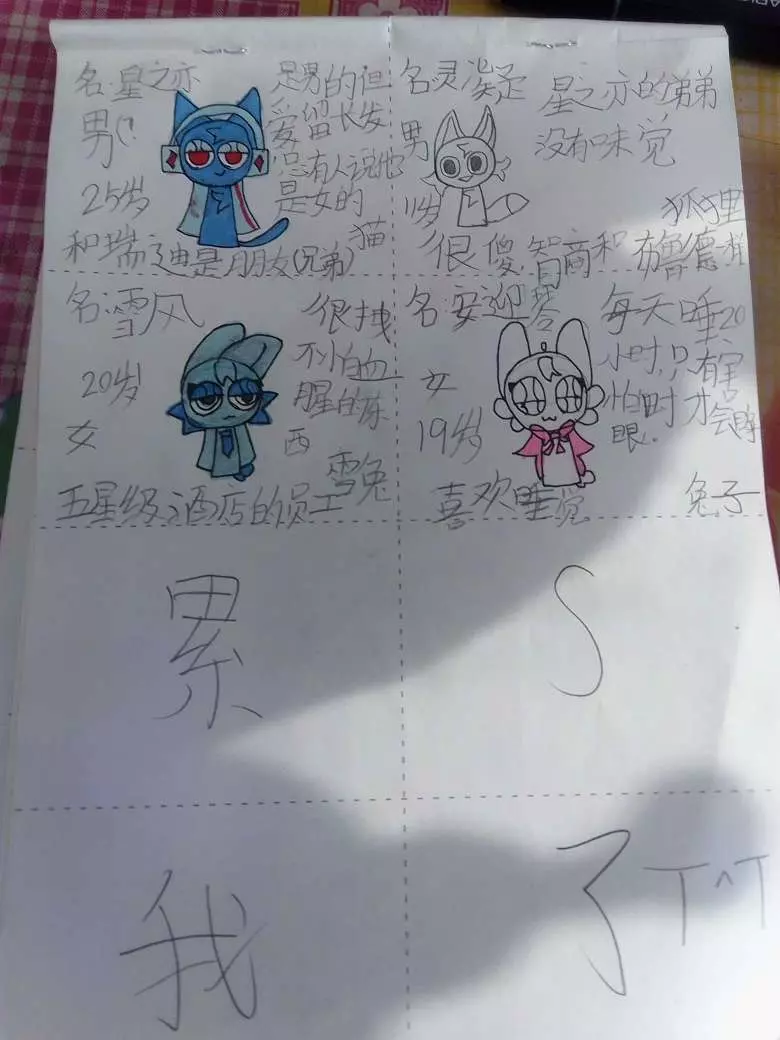 名:星之亦
男
25岁
是男的但
爱留长发
总有人说他
是女的
猫
和瑞迪是朋友(兄弟)
名:灵凝
男
11岁
星之亦的弟弟
没有味觉
狐狸
很傻,智商和布鲁德一样
名:雪风
20岁
女
很拽
不怕血
腥的东
西
雪兔
五星级酒店的员工
名:安迎琴
女
19岁
每天睡20
小时,只有害
怕时才会睁
眼.
喜欢睡觉
兔子
累
S
我
了T^T